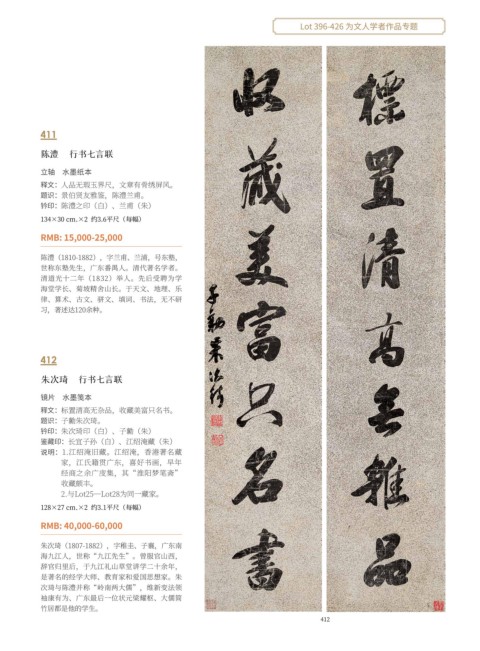 Lot 396-426 为文人学者作品专题
411
陈澧 行书七言联
立轴 水墨纸本
释文：人品无瑕玉界尺，文章有骨情屏风。
题识：景伯贤友雅鉴，陈澧兰甫。
钤印：陈澧之印（白）、兰甫（朱）
134×30 cm.×2 约3.6平尺（每幅）
RMB: 15,000-25,000
陈澧（1810-1882），字兰甫、兰浦，号东塾，
世称东塾先生，广东番禺人。清代著名学者。
清道光十二年（1832）举人。先后受聘为学
海堂学长、菊坡精舍山长。于天文、地理、乐
律、算术、古文、骈文、填词、书法，无不研
习，著述达120余种。
412
朱次琦 行书七言联
镜片 水墨笺本
释文：标置清高无杂品，收藏美富只名书。
题识：子勷朱次琦。
钤印：朱次琦印（白）、子勷（朱）
鉴藏印：长宜子孙（白）、江绍淹藏（朱）
说明：1.江绍淹旧藏。江绍淹，香港著名藏
家，江氏籍贯广东，喜好书画，早年
经商之余广度集，其“淮阳梦笔斋”
收藏颇丰。
2.与Lot25—Lot28为同一藏家。
128×27 cm.×2 约3.1平尺（每幅）
RMB: 40,000-60,000
朱次琦（1807-1882），字稚圭，子襄，广东南
海九江人，世称“九江先生”。曾服官山西，
辞官归里后，于九江礼山草堂讲学二十余年，
是著名的经学大师、教育家和爱国思想家。朱
次琦与陈澧并称“岭南两大儒”，维新变法领
袖康有为、广东最后一位状元梁耀枢、大儒简
竹居都是他的学生。
標置清高無雜品
收藏美富只名書
子勷朱次琦
412